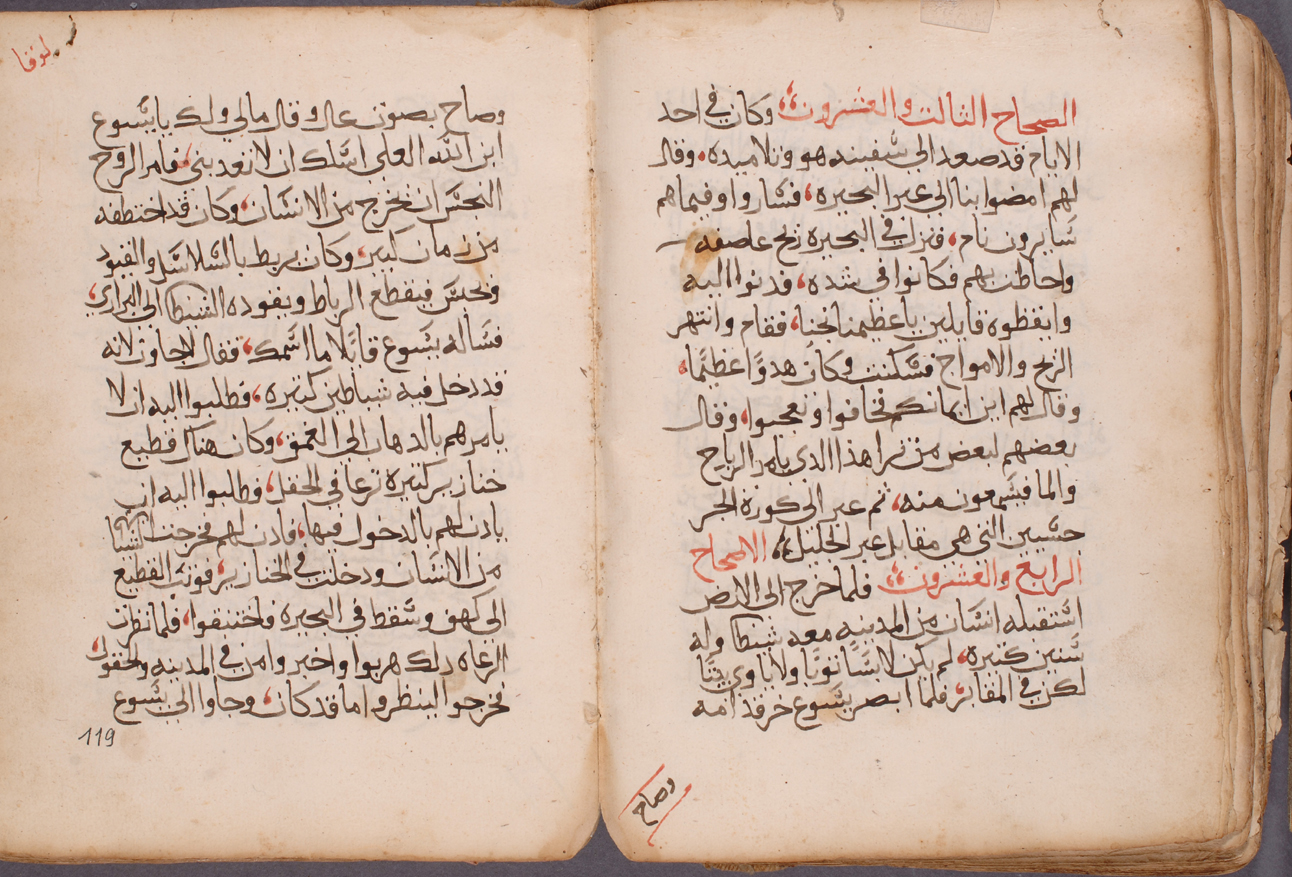 الصحاح الثالت والعشرون؛ وكان في احد
الايام قد صعد الى سفينه هو وتلاميده، وقال
لهم امضوا بنا الى عبر البحيره، فساروا وفيماهم
سايرون نام، فنزل في البحيره ريح عاصفه
واحاطت بهم فكانوا في شده، فدنوا اليه
وايقظوه قايلين ياعظيمنا نجنا، فقام وانتهر
الريح والامواج فسكنت وكان هدوًا عظيمًا،
وقال لهم اين ايمانكم فخافوا وتعجبوا، وقال
بعضهم لبعض من ترا هذا الدي يامر الرياح
والما فيسمعون منه، ثم عبر الى كورة الجر
جسيين التي هي مقابل عبر الجليل؛ الاصحاح
الرابع والعشرون؛ فلما خرج الى الارض
استقبله انسان من المدينه معه شيطا وله
سنين كتيره، لم يكن لابسًا توبًا ولا ياوي بيتًا
لكن في المقابر، فلما ابصر يسوع خر قدامه
وصاح
لوقا
وصاح بصوت عال وقال مالي ولك يايسوع
ابن الله العلي اسلك ان لا تعدبني، فامر الروح
النجس ان يخرج من الانسان، وكان قد اختطفه
من زمان كبير، وكان يربط بالسلاسل والقيود
ويحبس فيقطع الرباط ويقوده الشيطا الى البراري،
فساله يسوع قايلا ما اسمك، فقال لاجاون لانه
قد دخل فيه شياطين كتيره، فطلبوا اليه ان لا
يامرهم بالدهاب الى العمق، وكان هناك قطيع
خنازير كتيره ترعا في الحقل، فطلبوا اليه ان
يادن لهم بالدخول فيها، فادن لهم فخرجت الشيا
من الانسان ودخلت في الخنازير، فوتب القطيع
الى كهف وسقط في البحيره فاختنقوا، فلما نظرت
الرعاه دلك هربوا واخبروا من في المدينه والحقول،
فخرجوا لينظروا ما قد كان، وجاوا الى يسوع
119